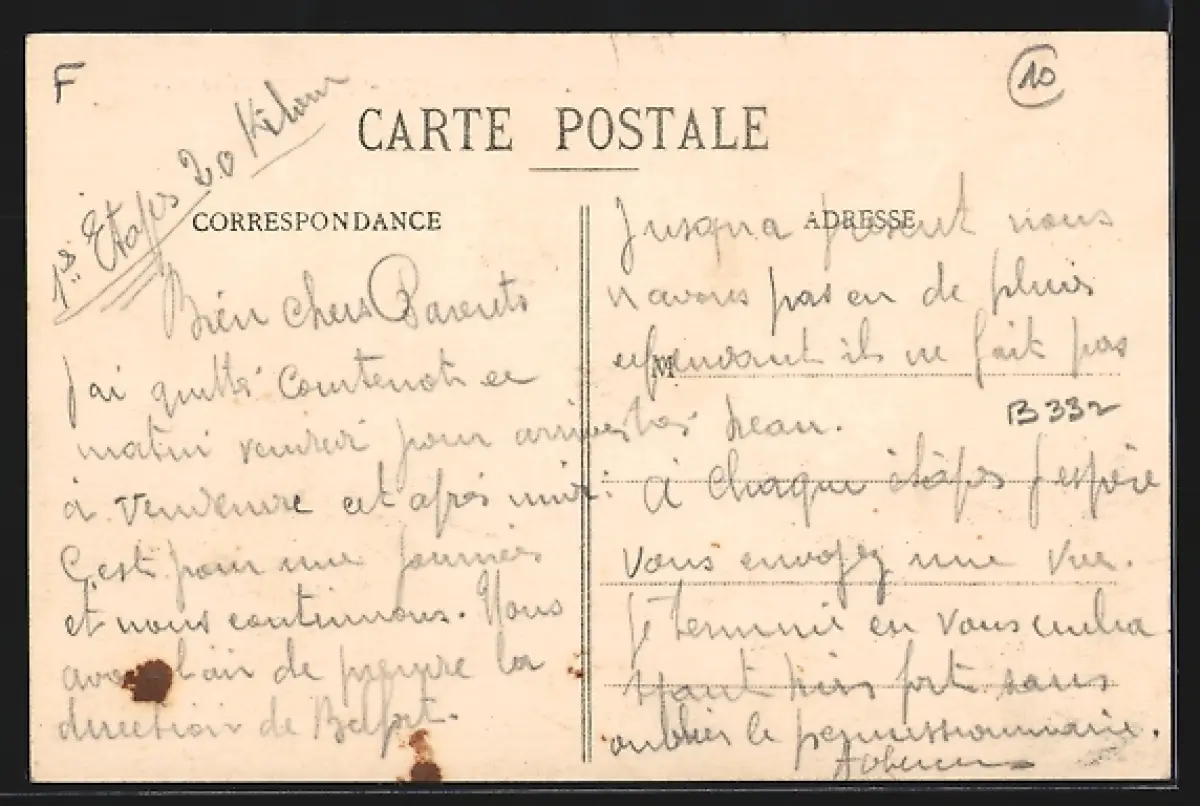 F
10
1re Etaps 20 Kilom
CARTE POSTALE
CORRESPONDANCE
Bien chers Parents
j'ai quitté Courtenot ce
matin vendredi pour arriver
à Vendeuvre cet après midi:
C'est pour une journées
et nous continuons. Nous
avons l'air de prendre la
direction de Belfort.
ADRESSE
Jusqua présent nous
n'avons pas eu de pluie
cependant il ne fait pas
M
très beau.
B 332
à chaque étâps j'espère
vous envoyez une vue.
Je termine en vous embra
ssant bien fort sans
oublier le permissionnaire.